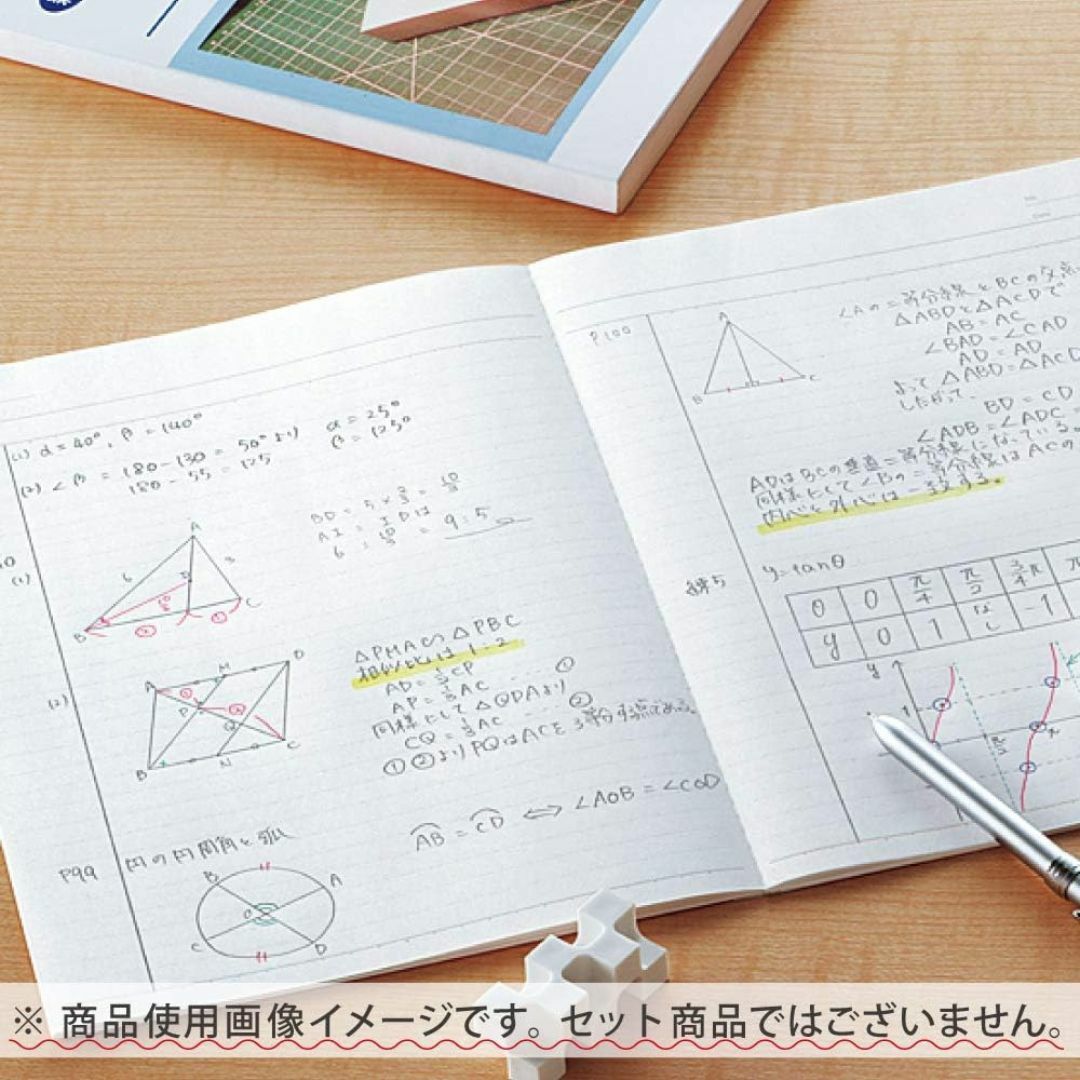 (1) α=40°, β=140°
(2) ∠β=180-130=50°より α=25°
180-55=125 β=125°
BD=5×
AI: IDは
= 9:5
(1)
A
6
3
B
C
△PMA∽△PBC
相似比は 1:2
AD=CP
AP=⅓AC ... ①
同様にして△QDAより
CQ=⅓AC ... ②
①②よりPQはACを3等分する点である。
(2)
A
M
D
P
Q
B
N
C
P99
円の円周角と弧
AB = CD ⟺ ∠AOB=∠COD
B
A
O
C
D
P100
A
B
C
∠Aの二等分線とBCの交点
△ABDと△ACDで
AB=AC
∠BAD=∠CAD
AD=AD
よって△ABD=△ACD
したがって、
BD=CD
∠ADB=∠ADC=
ADはBCの垂直二等分線になっている。
同様にして∠Bの二等分線はACの
内心と外心は一致する。
y=tanθ
θ 0 π/4 π/2 3/4π π
y 0 1 なし -1
y
1
π/2
π
※ 商品使用画像イメージです。セット商品ではございません。